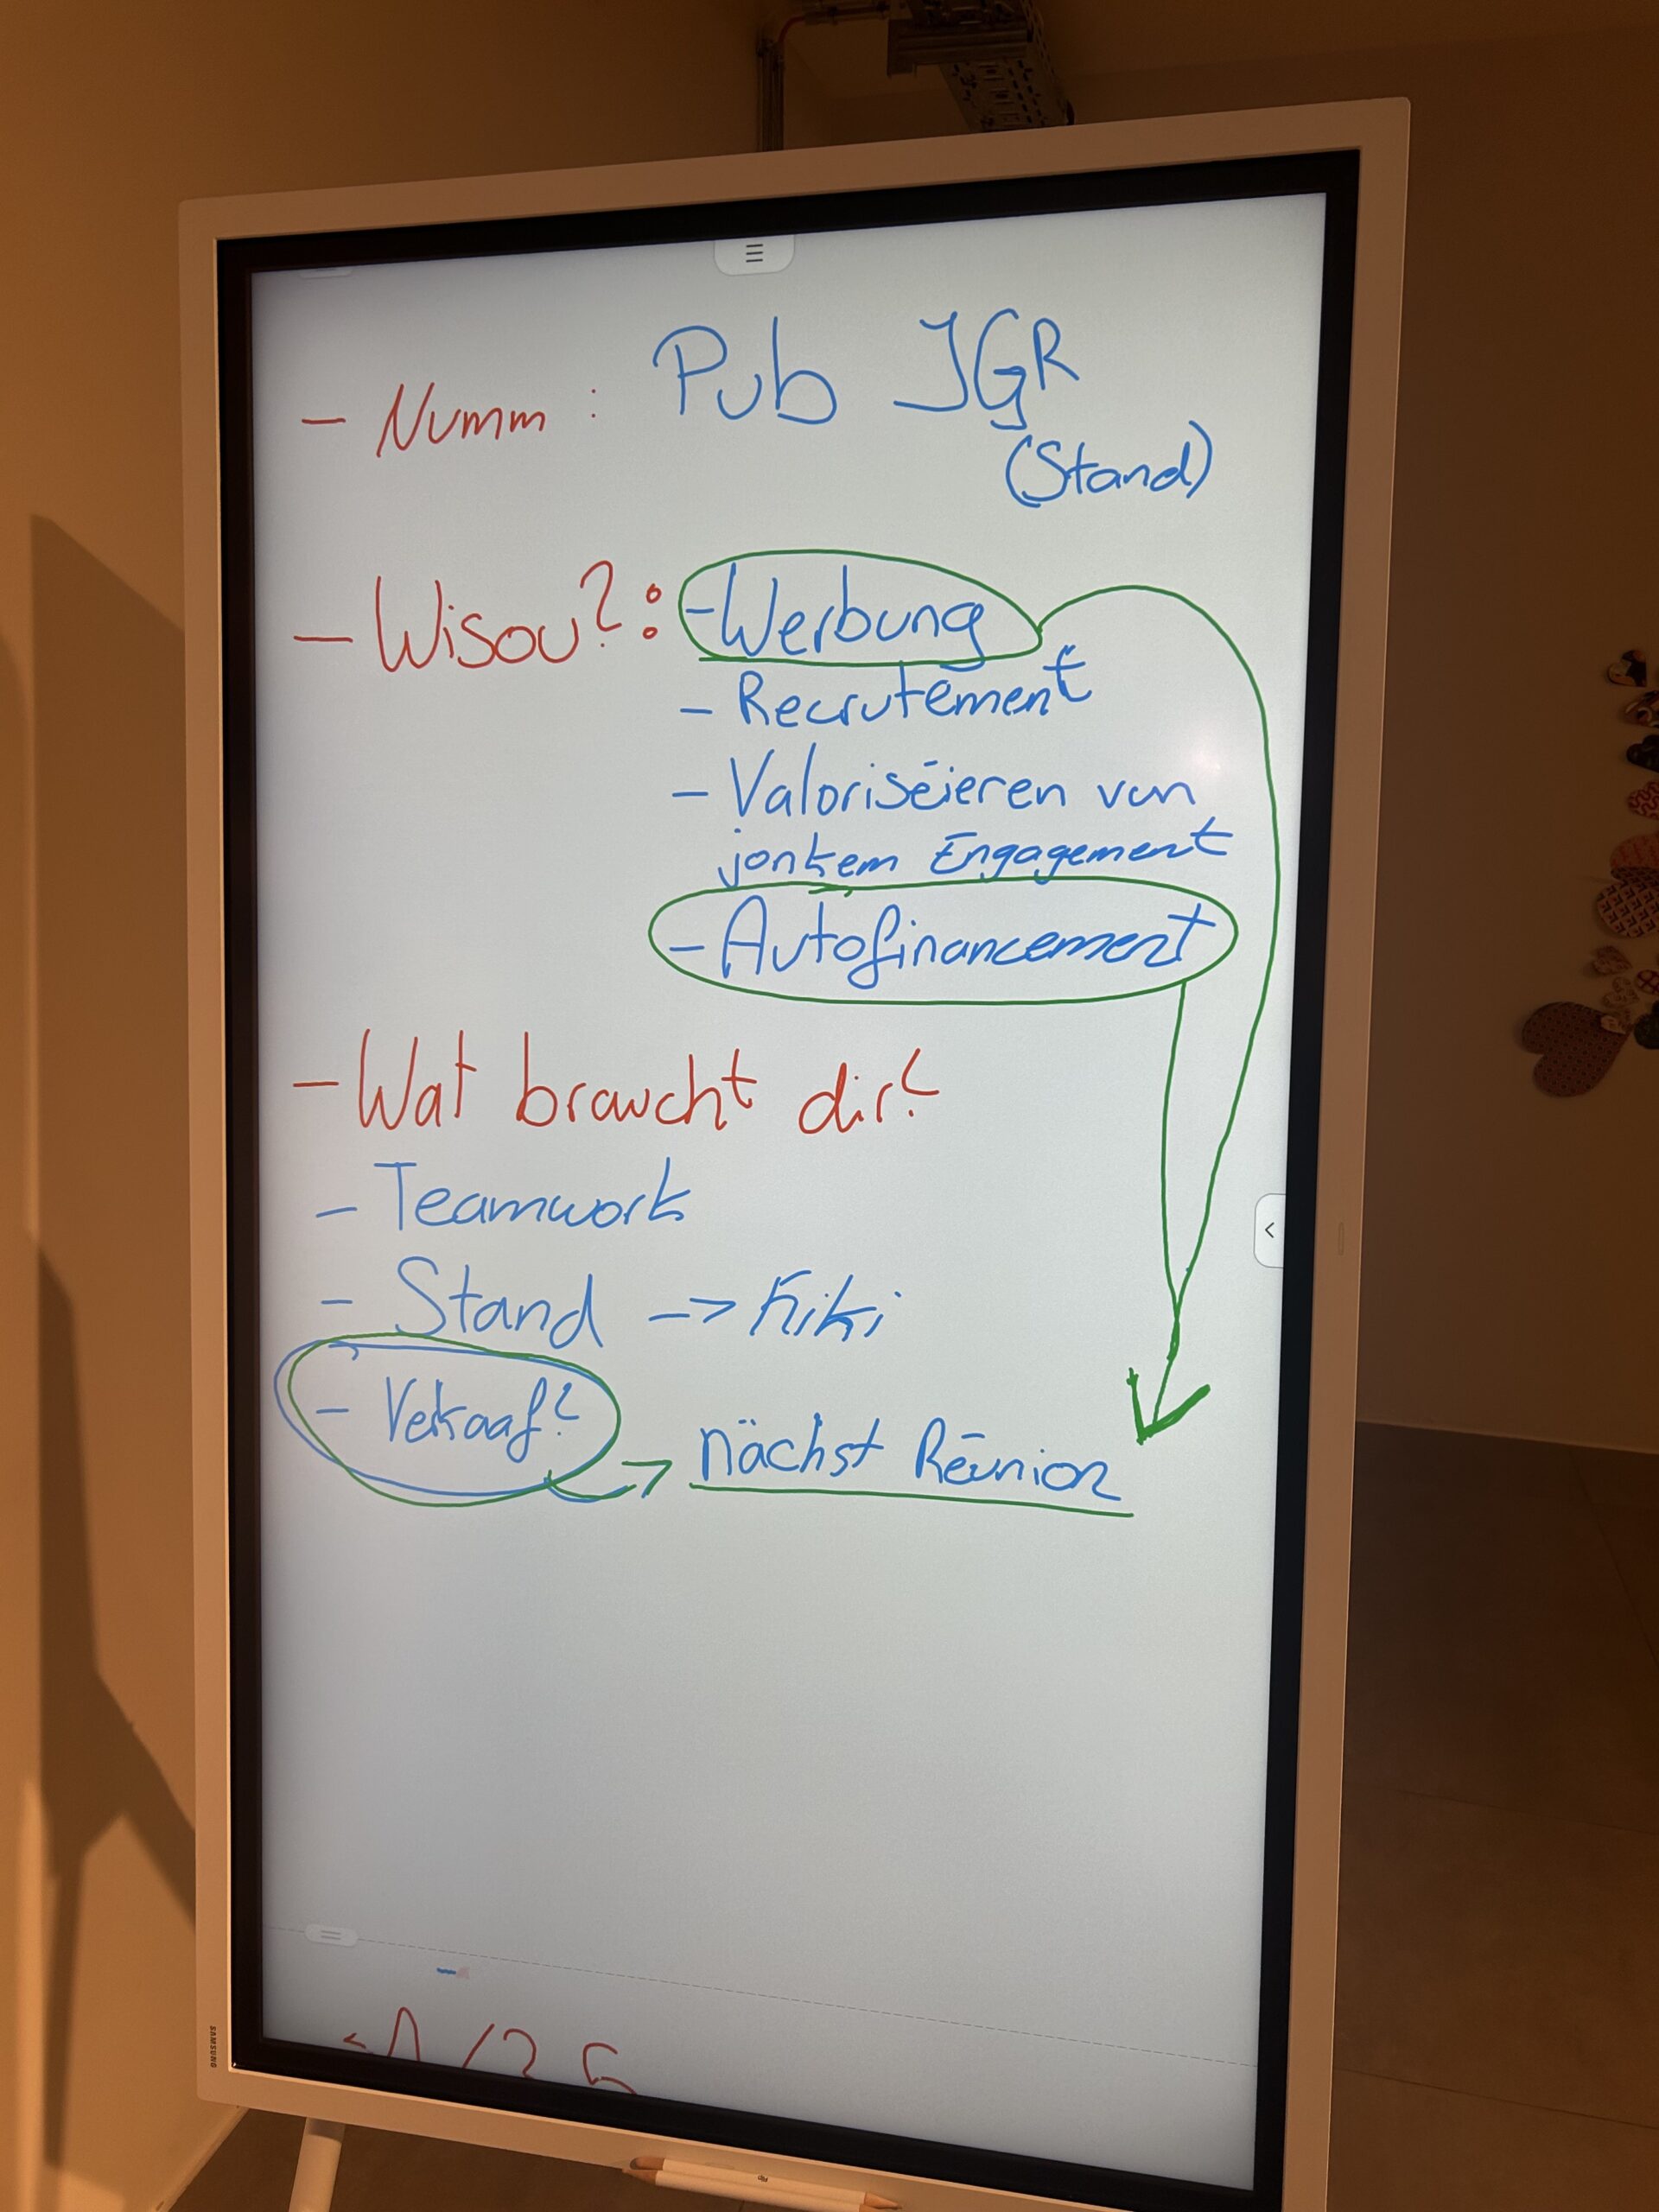 - Numm : Pub JGR
(Stand)
- Wisou? : - Werbung
- Recrutement
- Valoriséieren vun
jonkem Engagement
- Autofinancement
- Wat braucht dir?
- Teamwork
- Stand -> Kiki
- Verkaaf?
nächst Réunion
SAMSUNG